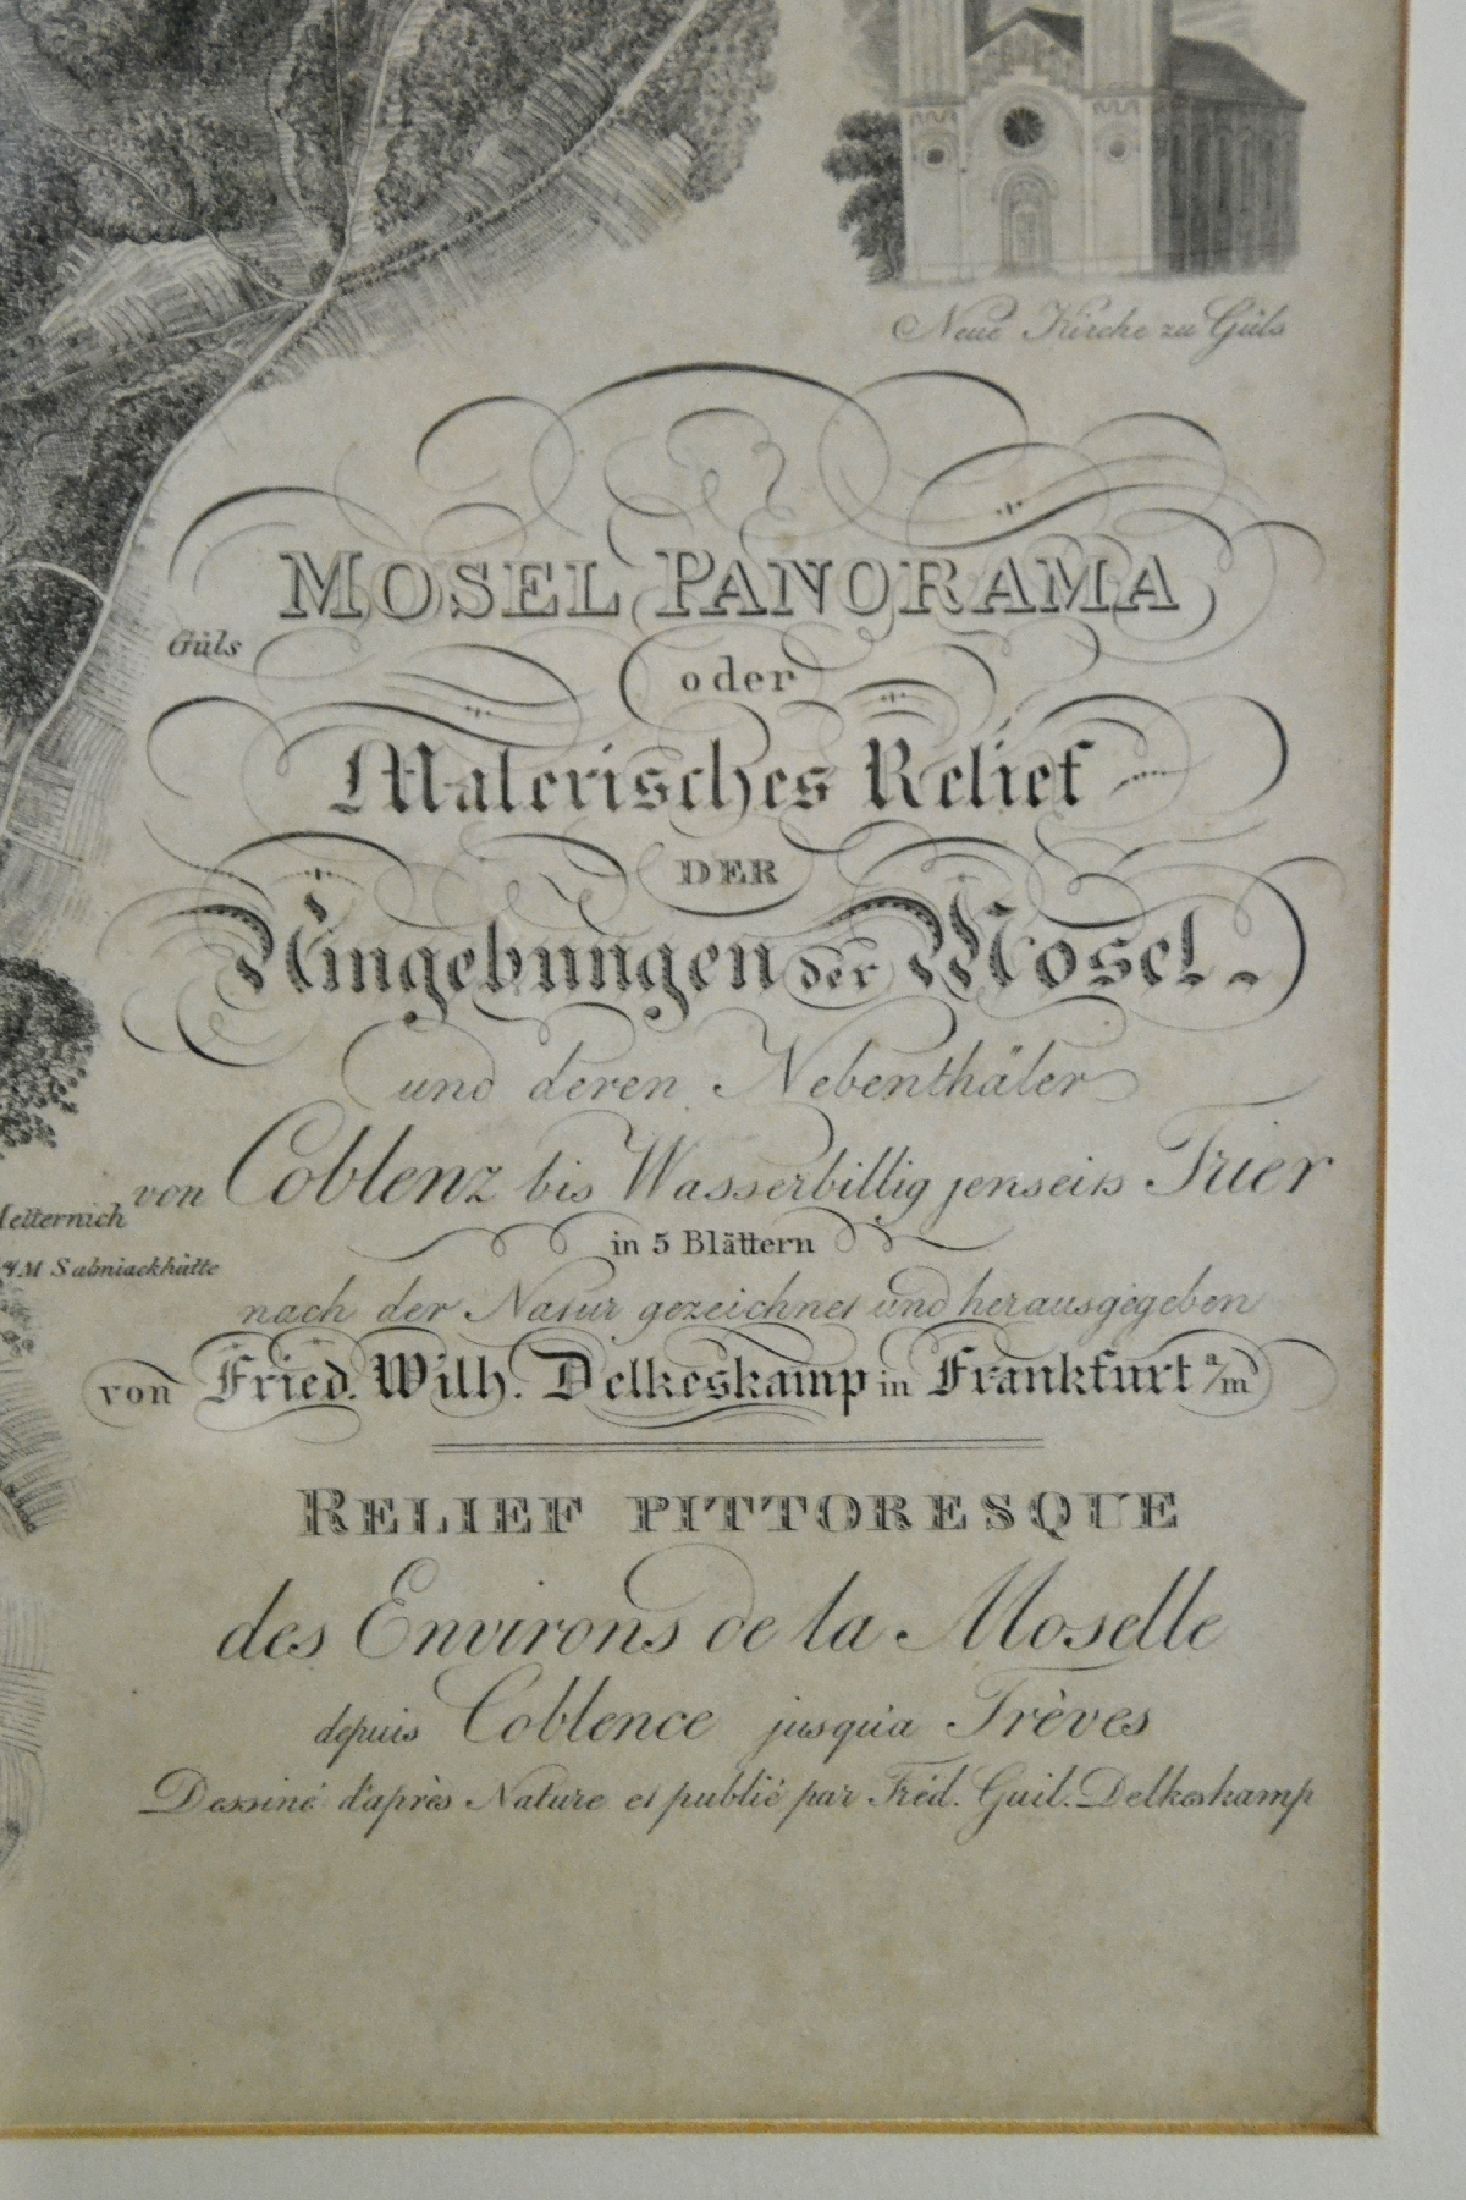 Neue Kirche zu Güls
MOSEL PANORAMA
Güls
oder
Malerisches Relief
DER
Umgebungen der Mosel
und deren Nebenthäler
von Coblenz bis Wasserbillig jenseits Trier
Metternich
in 5 Blättern
4M Salmiackhütte
nach der Natur gezeichnet und herausgegeben
von Fried. Wilh. Delkeskamp in Frankfurt a/m
RELIEF PITTORESQUE
des Environs de la Moselle
depuis Coblence jusqu'a Trèves
Dessiné d'après Nature et publié par Fréd. Guil. Delkeskamp